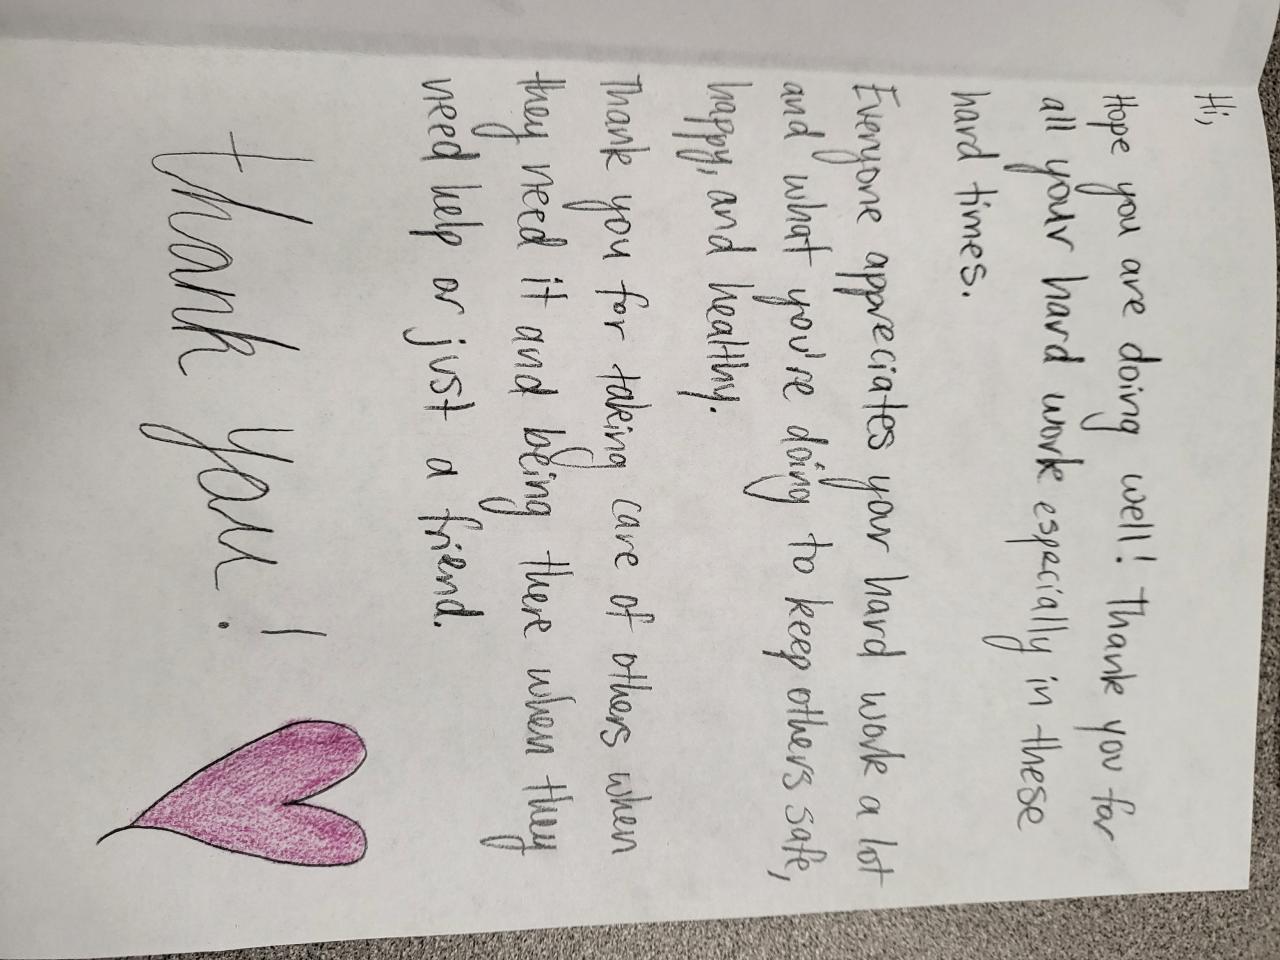 Hi,
Hope you are doing well! Thank you for
all your hard work especially in these
hard times.
Everyone appreciates your hard work a lot
and what you're doing to keep others safe,
happy, and healthy.
Thank you for taking care of others when
they need it and being there when they
need help or just a friend.
Thank you!